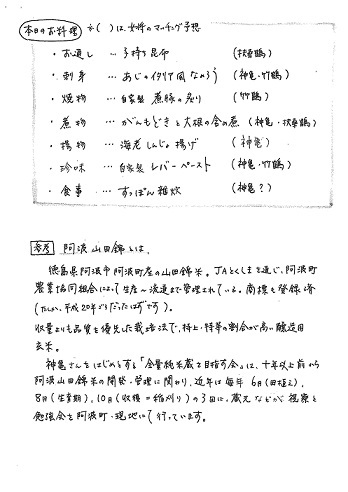 本日のお料理 ※( )は、女将のマッチング予想
・お通し … 子持ち昆布 (扶桑鶴)
・刺身 … あじのイタリア風なめろう (神亀・竹鶴)
・焼物 … 自家製 煮豚の炙り (竹鶴)
・煮物 … がんもどきと大根の含め煮 (神亀・扶桑鶴)
・揚物 … 海老しんじょ揚げ (神亀)
・珍味 … 自家製 レバーペースト (神亀・竹鶴)
・食事 … すっぽん雑炊 (神亀?)
参考 阿波山田錦とは、
徳島県阿波市阿波町産の山田錦米。JAとくしまを通じ、阿波町
農業協同組合によって生産〜流通まで管理されている。商標も登録済
(たしか、平成20年ごろだったはずです)。
収量よりも品質を優先した栽培法で、特上・特等の割合が高い醸造用
玄米。
神亀さんをはじめとする「全量純米蔵を目指す会」は、十年以上前から
阿波山田錦米の開発・管理に関わり、近年は毎年 6月(田植え)、
8月(生育期)、10月(収穫=稲刈り)の3回に、蔵元などが視察と
勉強会を阿波町・現地にて行っています。